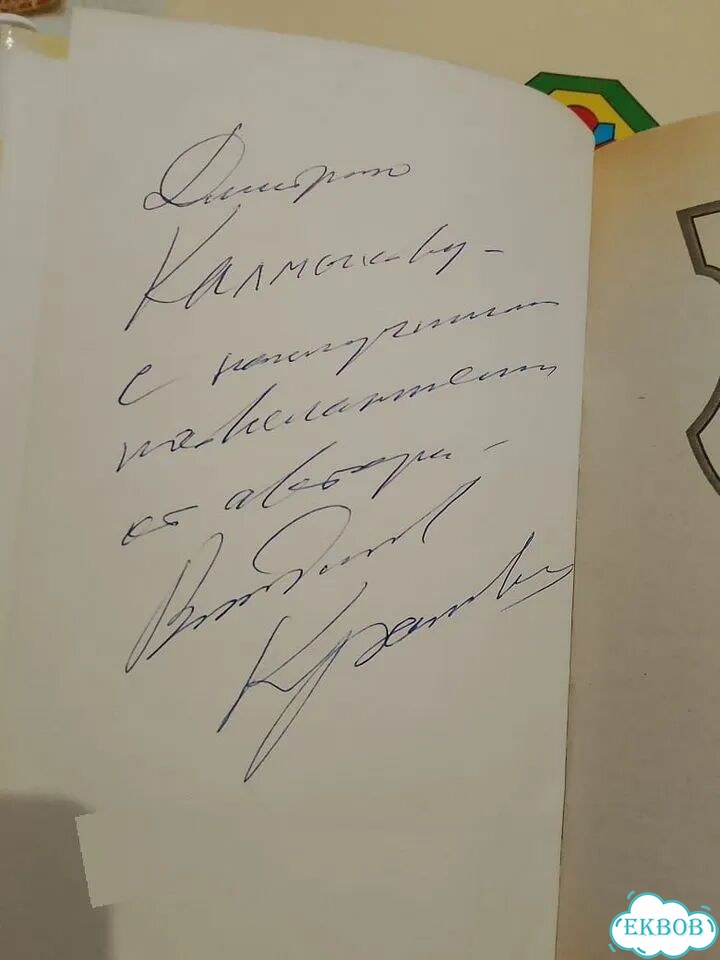 Дмитрию
Калмыкову -
с наилучшими
пожеланиями
от автора -
Владислав
Крапивин
EKBOB